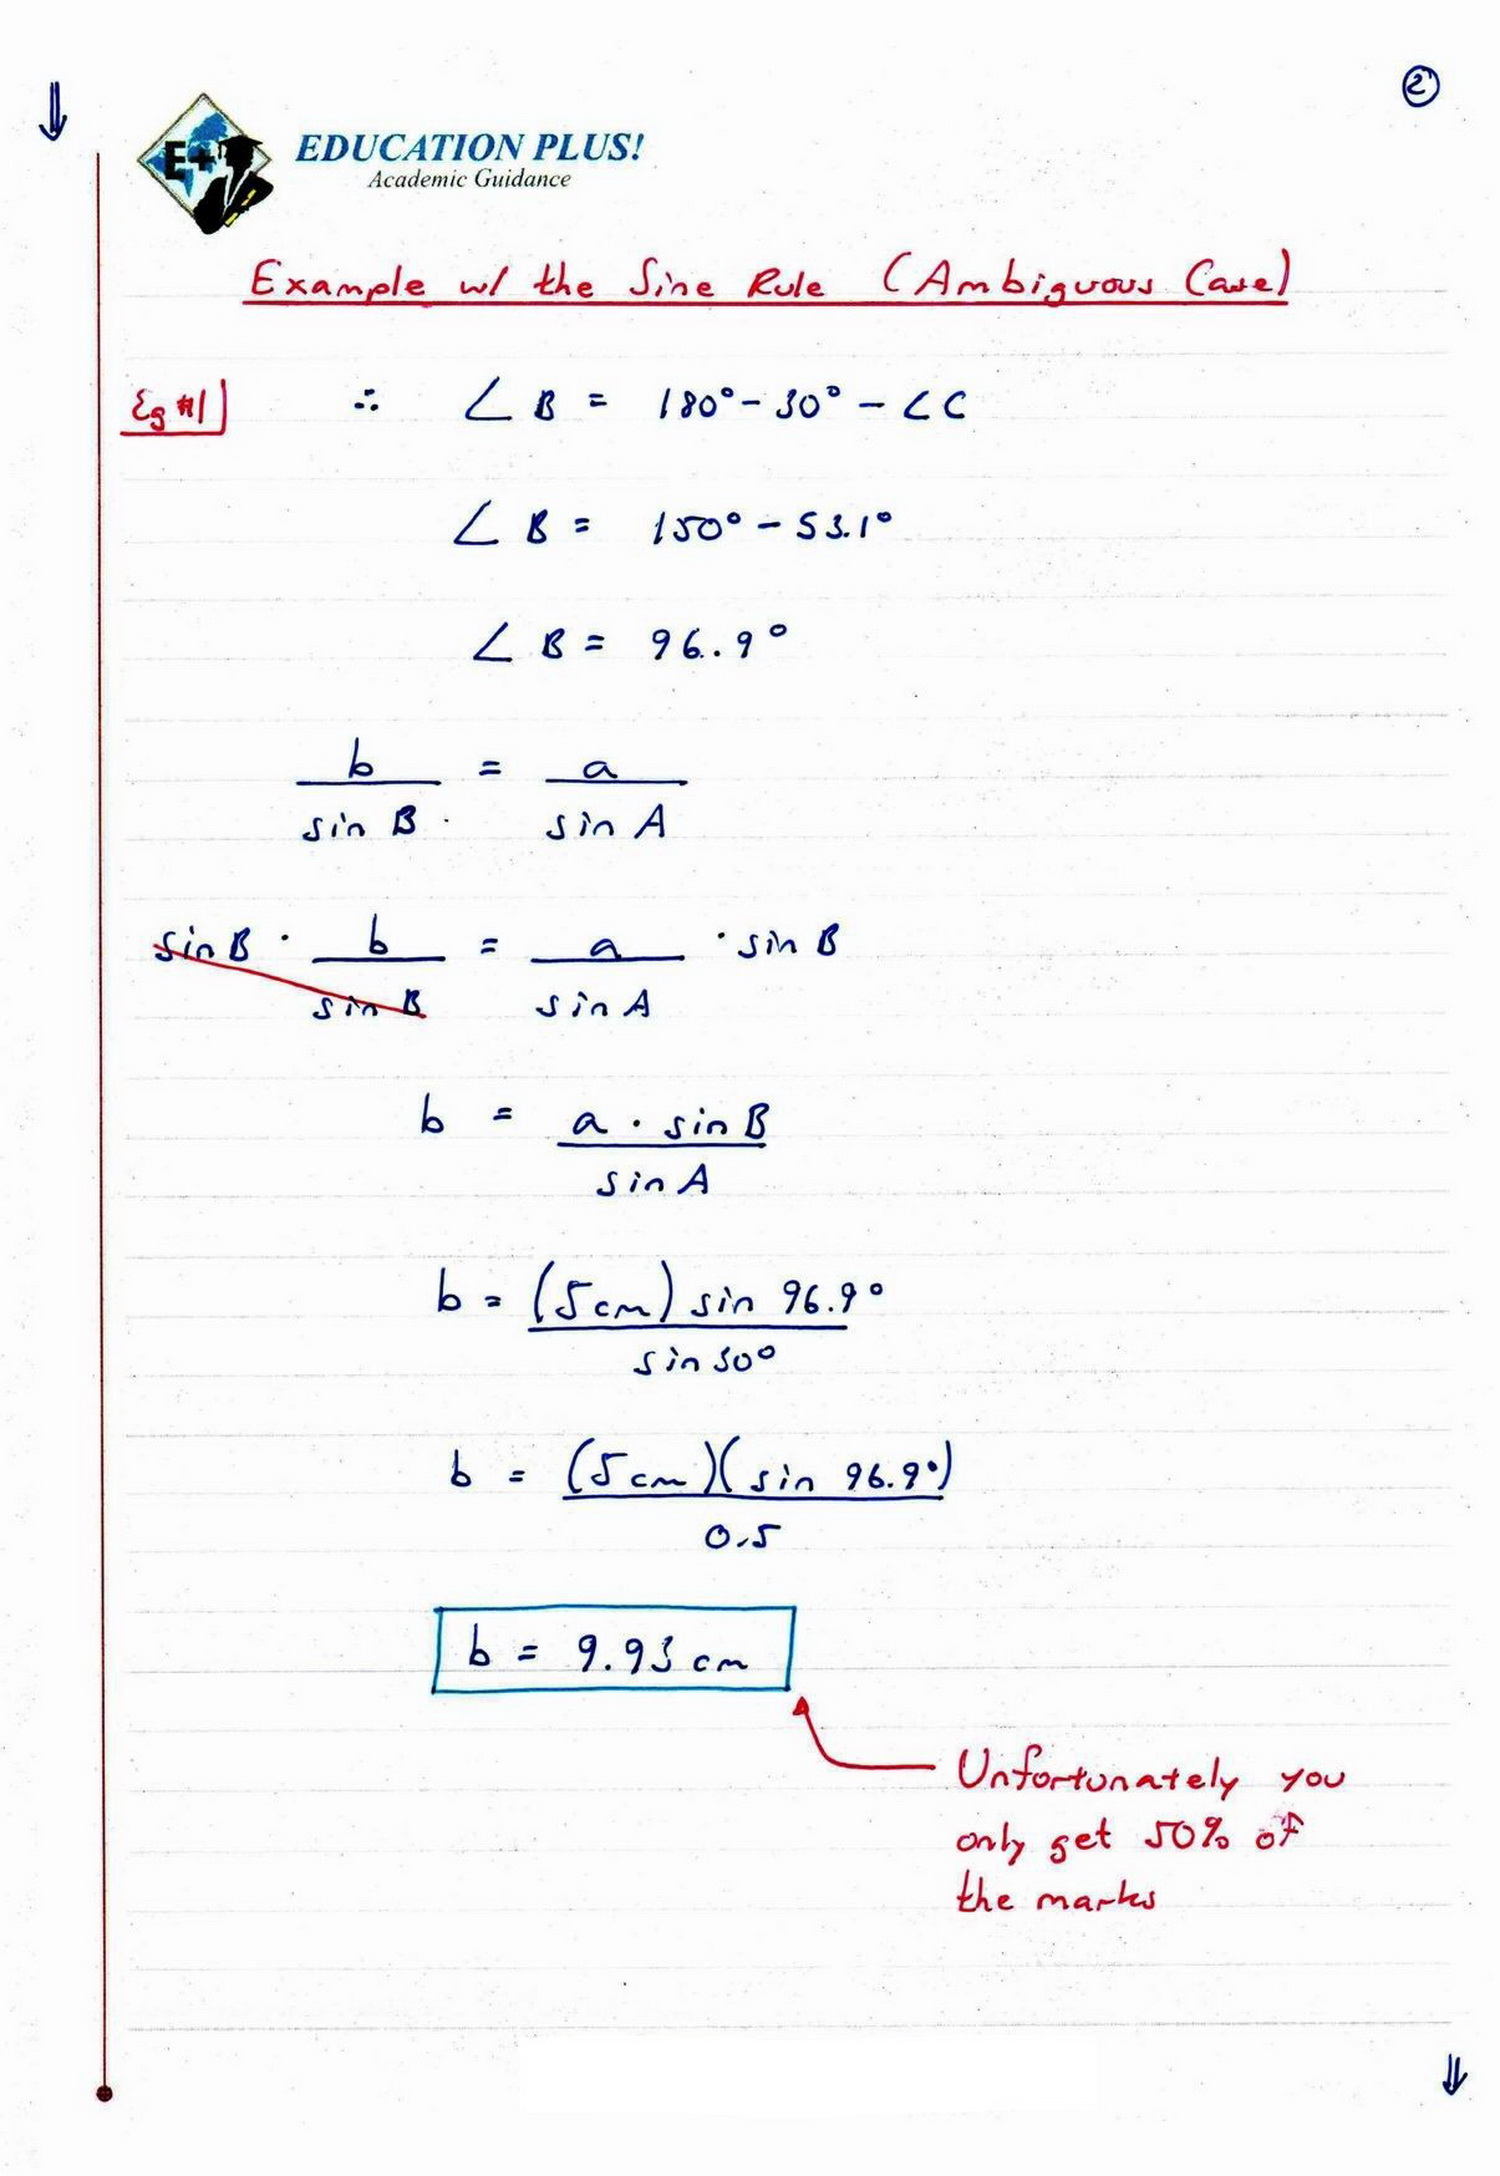 ②
E+
EDUCATION PLUS!
Academic Guidance
Example w/ the Sine Rule (Ambiguous Case)
Eg #1
∴ ∠B = 180° - 30° - ∠C
∠B = 150° - 53.1°
∠B = 96.9°
b = a
sin B sin A
sin B · b = a · sin B
sin B sin A
b = a · sin B
sin A
b = (5cm) sin 96.9°
sin 30°
b = (5cm)(sin 96.9°)
0.5
b = 9.93 cm
Unfortunately you
only get 50% of
the marks